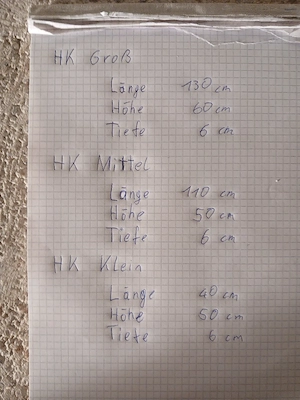 HK Groß
Länge 130 cm
Höhe 60 cm
Tiefe 6 cm
HK Mittel
Länge 110 cm
Höhe 50 cm
Tiefe 6 cm
HK Klein
Länge 40 cm
Höhe 50 cm
Tiefe 6 cm